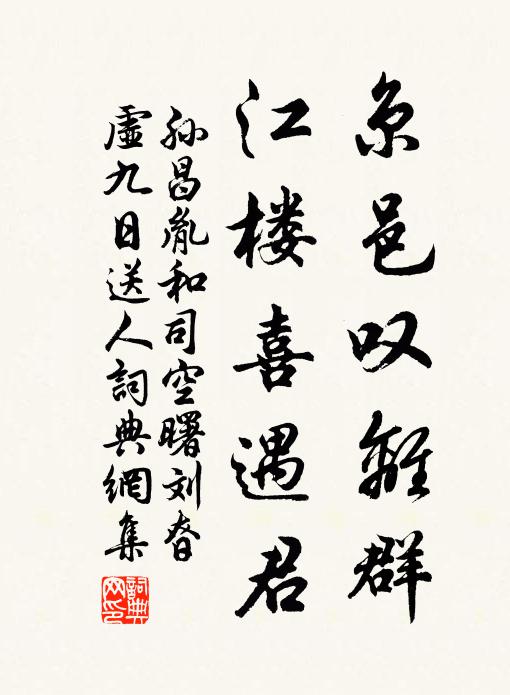 京邑叹離群
江楼喜遇君
孙昌胤和司空曙刘眘
虚九日送人詞典網集
詞典网印